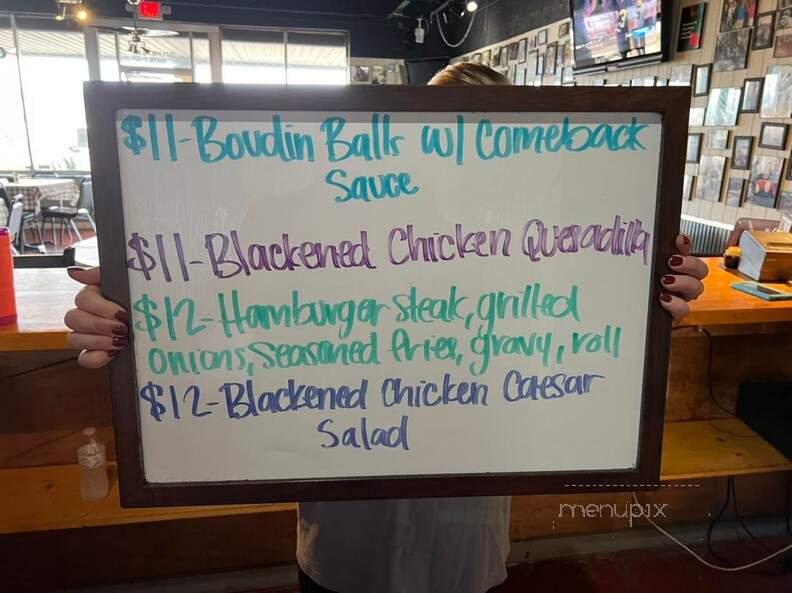 $11-Boudin Balls w/ Comeback
Sauce
$11-Blackened Chicken Quesadilla
$12-Hamburger steak, grilled
onions, seasoned fries, gravy, roll
$12-Blackened Chicken Caesar
Salad
menupix